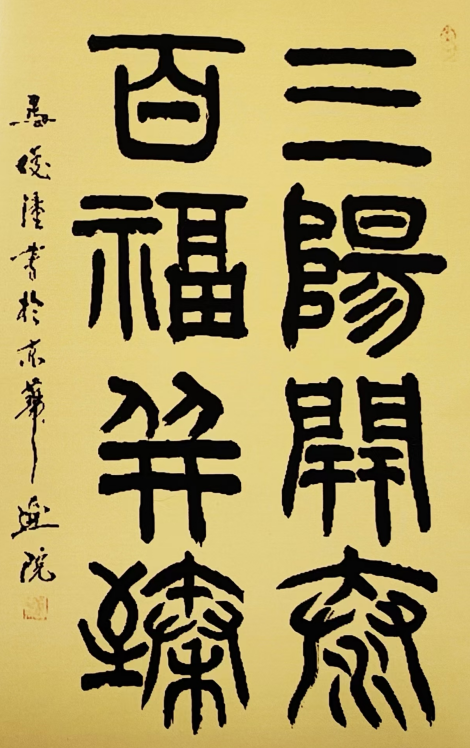 三陽開泰
百福并臻
書於京華院